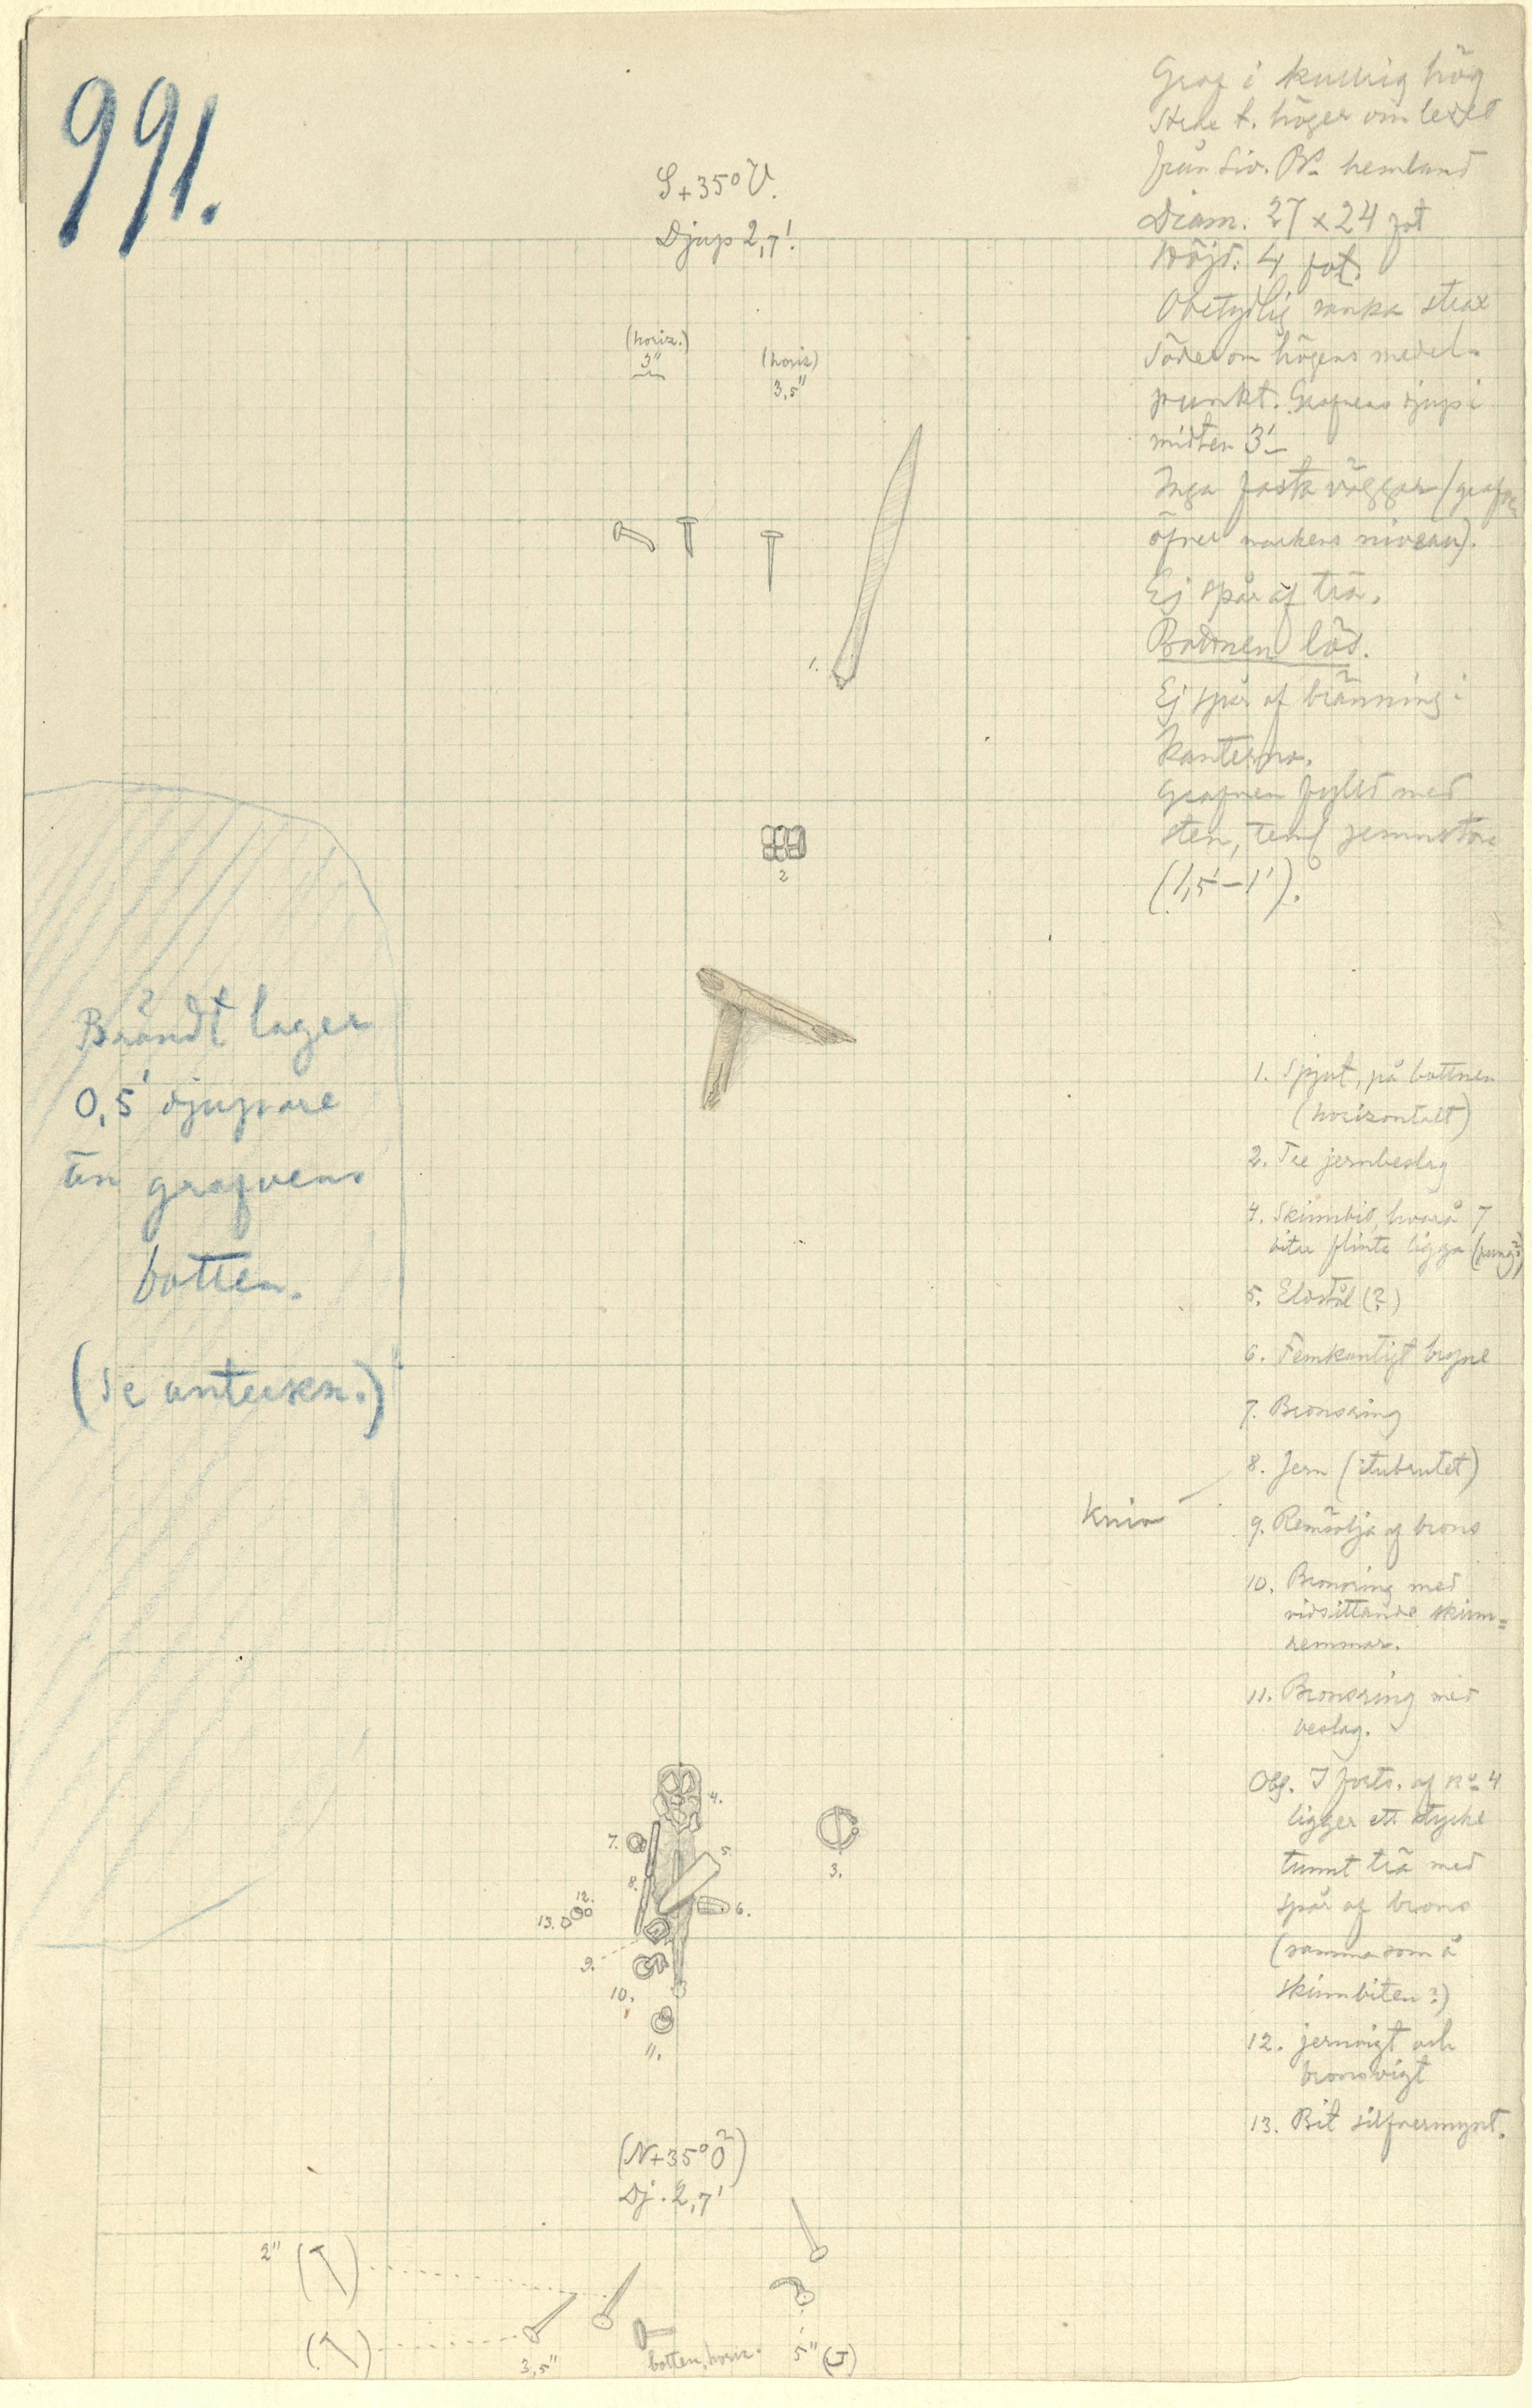 991.
S+35° V.
Djup 2,7'.
Graf i kullrig hög
t. höger om ledet
från hemland
Diam. 27 x 24 fot
Höjd. 4 fot.
Obetydlig sänka strax
söder om högens medel-
punkt. Grafvens djup i
midten 3'
Inga fasta väggar (grafven
öfver markens niveau).
Ej spår af trä.
Bottnen lös.
Ej spår af bränning i
kanterna.
Grafven fylld med
sten, teml. jemnstora
(1,5'-1').
(horiz.)
3"
(horiz)
3,5"
1.
2
Brändt lager
0,5' djupare
än grafvens
botten.
(Se anteckn.)
1. Spjut, på bottnen
(horizontalt)
2. Tre jernbeslag
4. Skinnbit, hvarå 7
bitar flinta ligga (pung?)
5. Eldstål (?)
6. Femkantigt bryne
7. Bronsring
8. Jern (itubrutet)
Kniv
9. Remsölja af brons
10. Bronsring med
vidsittande skinn=
remmar.
11. Bronsring med
beslag.
Obs. I forts. af no 4
ligger ett stycke
tunnt trä med
spår af brons
(samma som å
skinnbiten?)
12. jernvigt och
bronsvigt
13. Bit silfvermynt.
4.
7.
5.
3.
8.
12.
13.
6.
9.
10.
11.
(N+35° Ö)
Dj. 2,7'
2"
3,5"
botten, horiz.
5"